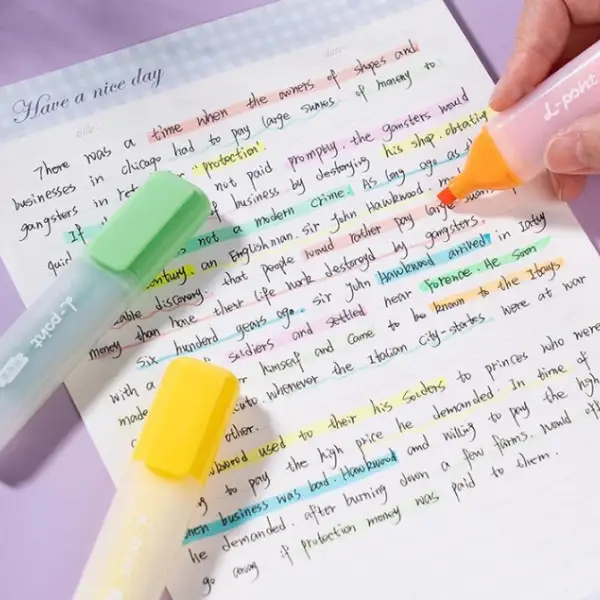 Have a nice day
title
date
There was a time when the owners of shopes and
businesses in chicago had to pay large sumes of money to
gangsters in ret "protection". not paid promphy. the gansters would
of business by destorying his shop. obtatig
If not a modern crime. As long ago as
an Englishman. Sir John Hawkwood.
discovery. that people would rather pay large
money than have their life work destoroyd by gangsters.
six hunderd years ago. Sir John Hawkwood arrived in Italy
soldiers and settled near Forence. He soon
himself and came to be known to the Itays
with a whenever the Italian city-states were at war
made
other. used to their his solders to princes who were
to pay the high price he demanded. In time of
when business was bad. Hawkwood and willing to pay the high
he demanded. after burning down a few farms. would off
go away if protection money was paid to them.
L-point
L-point